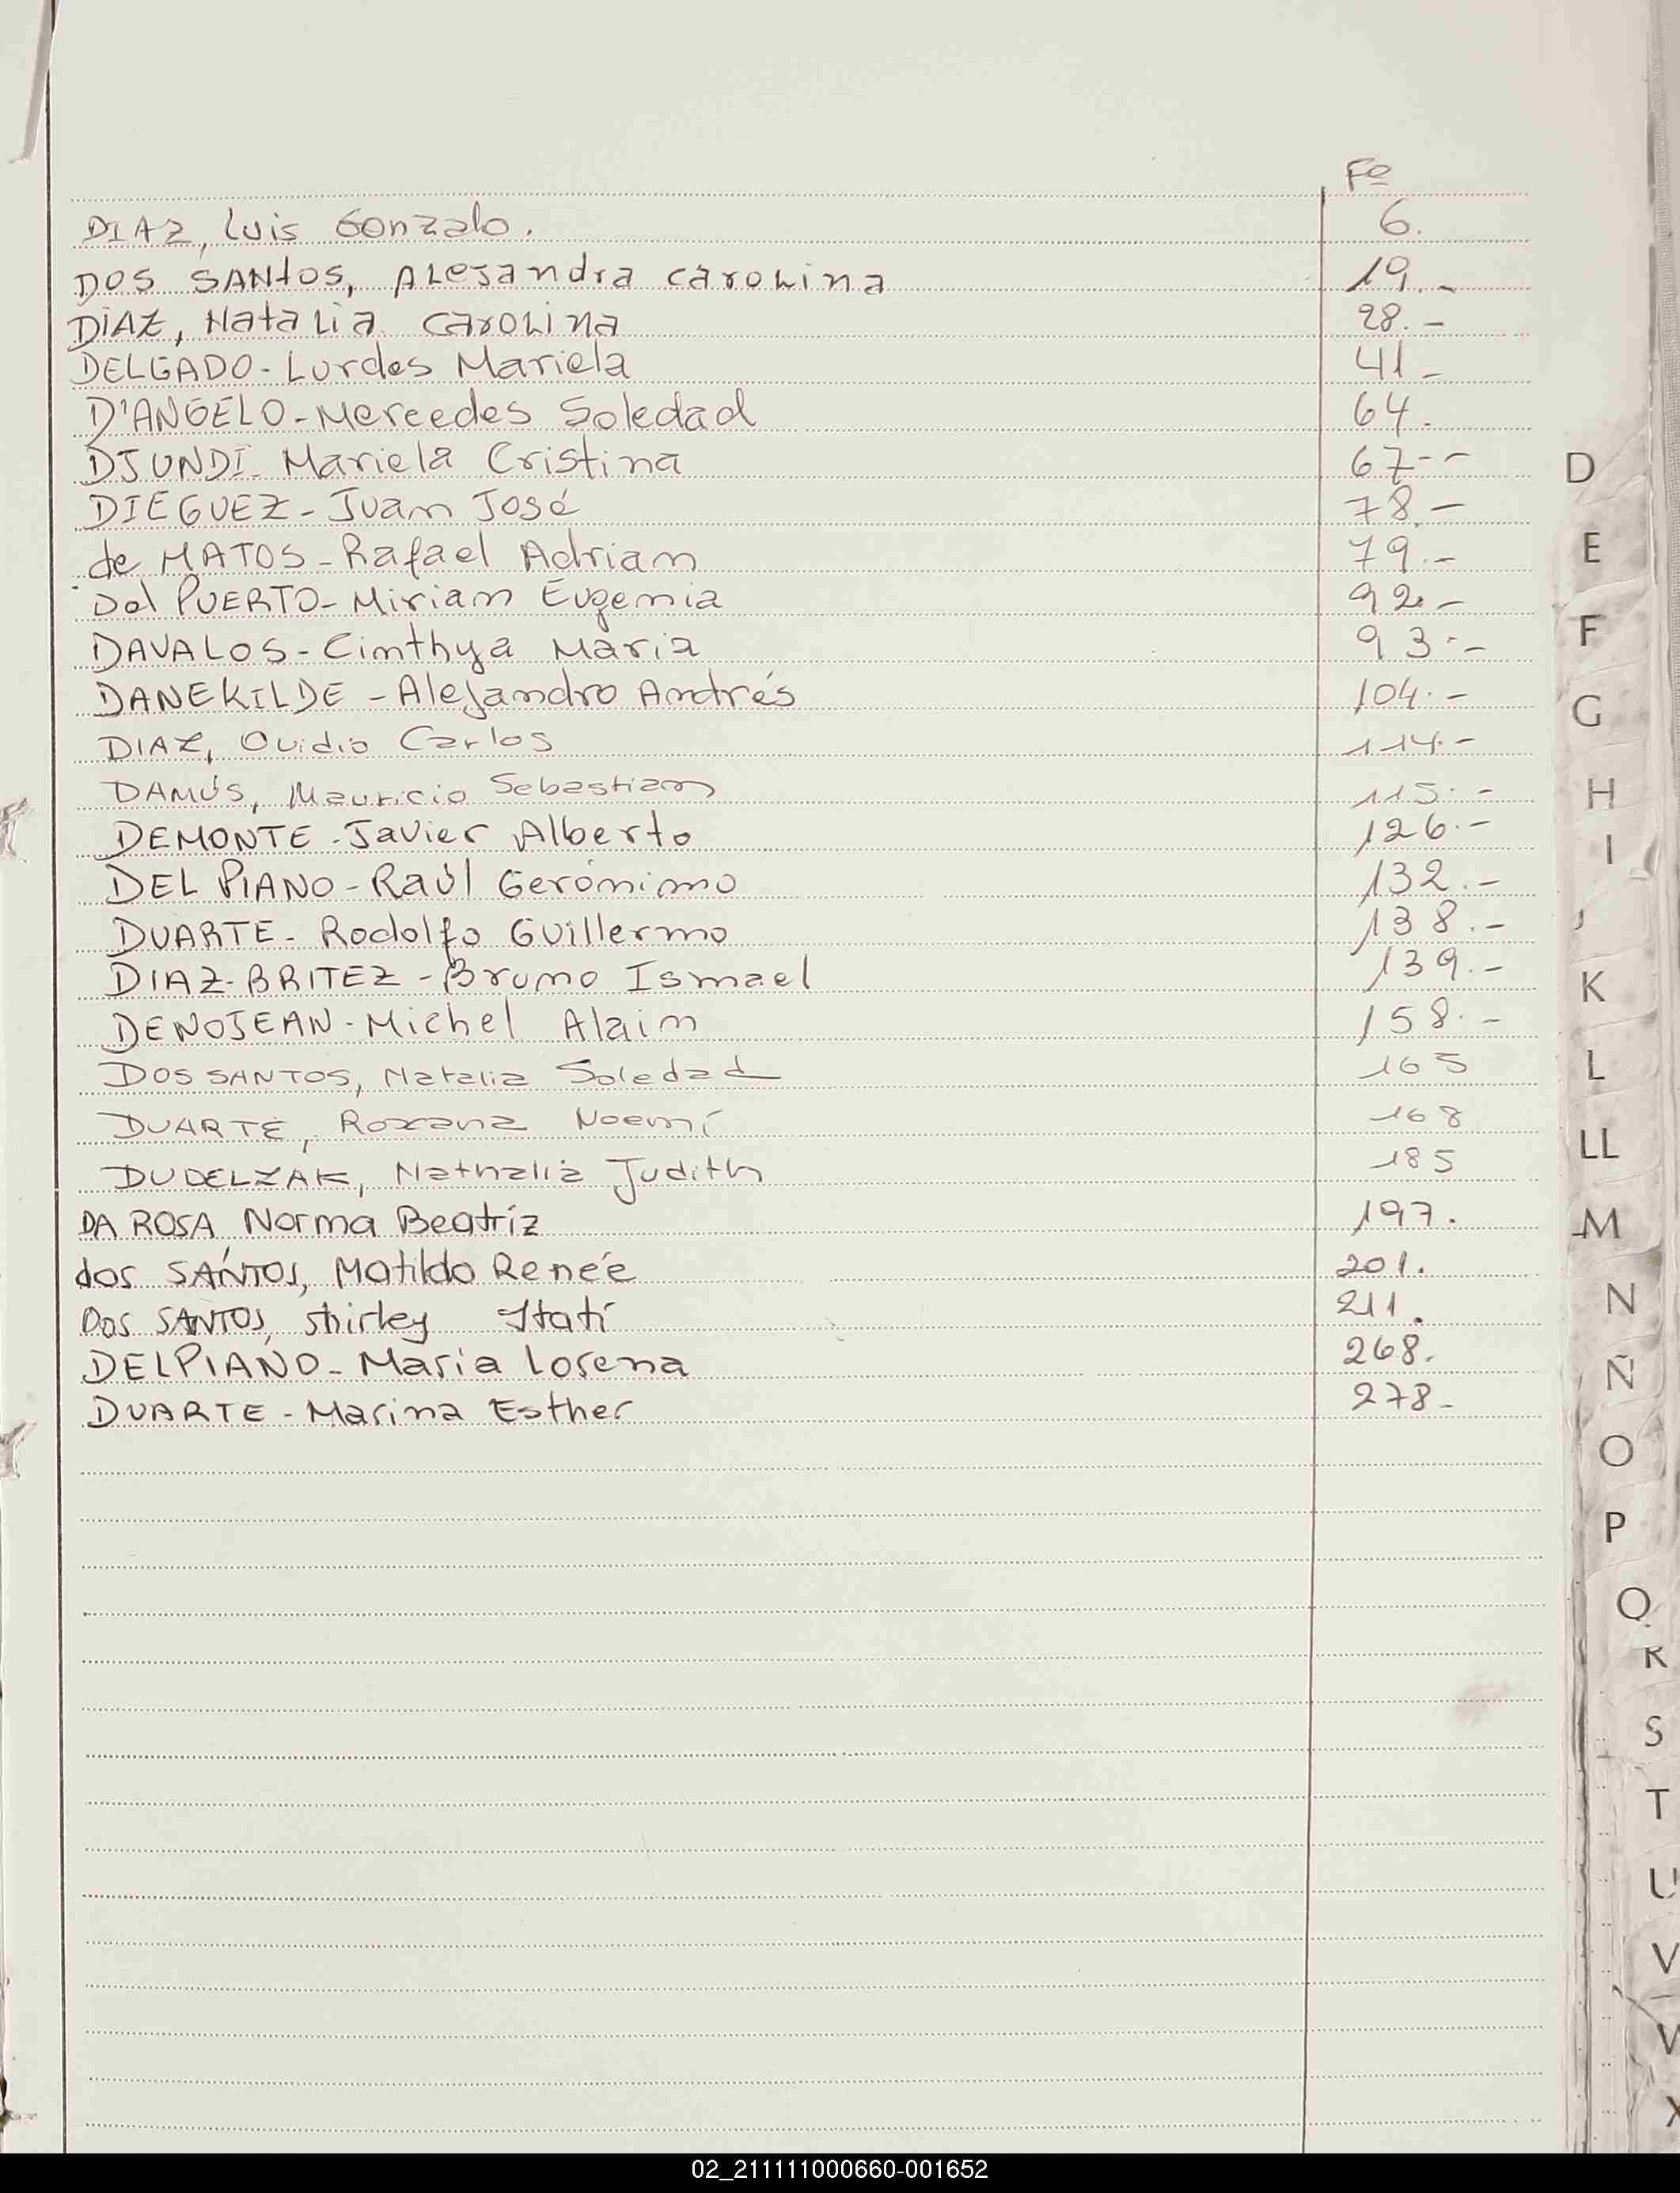 Fº
DIAZ, Luis Gonzalo. 6.
DOS SANtos, ALejandra caroLina 19.-
DiAZ, NataLia caroLina 28.-
DELGADO- Lurdes Mariela 41-
D'ANGELO-Mercedes Soledad 64.
DJUNDI- Mariela Cristina 67--
DIEGUEZ- Juan José 78.-
de MATOS-Rafael Adrian 79.-
Del PUERTO-Miriam Eugenia 92.-
DAVALOS-Cinthya Maria 93.-
DANEKILDE -Alejandro Andrés 104.-
DIAZ, Ovidio Carlos 114.-
DAMÚS, Mauricio Sebastian 115.-
DEMONTE-Javier Alberto 126.-
DEL PIANO-Raúl Gerónimo 132.-
DUARTE- Rodolfo Guillermo 138.-
DIAZ-BRITEZ-Bruno Ismael 139.-
DENOJEAN-Michel Alain 158.-
DOS SANTOS, Natalia Soledad 165
DUARTE, Roxana Noemí 168
DUDELZAK, Nathalia Judith 185
DA ROSA Norma Beatríz 197.
dos SANTOS, Matilda Renée 201.
Dos SANTOS, Shirley Itatí 211.
DELPIANO-Maria Lorena 268.
DUARTE-Marina Esther 278-
D
E
F
G
H
I
J
K
L
LL
M
N
Ñ
O
P
Q
R
S
T
U
V
X
02_211111000660-001652